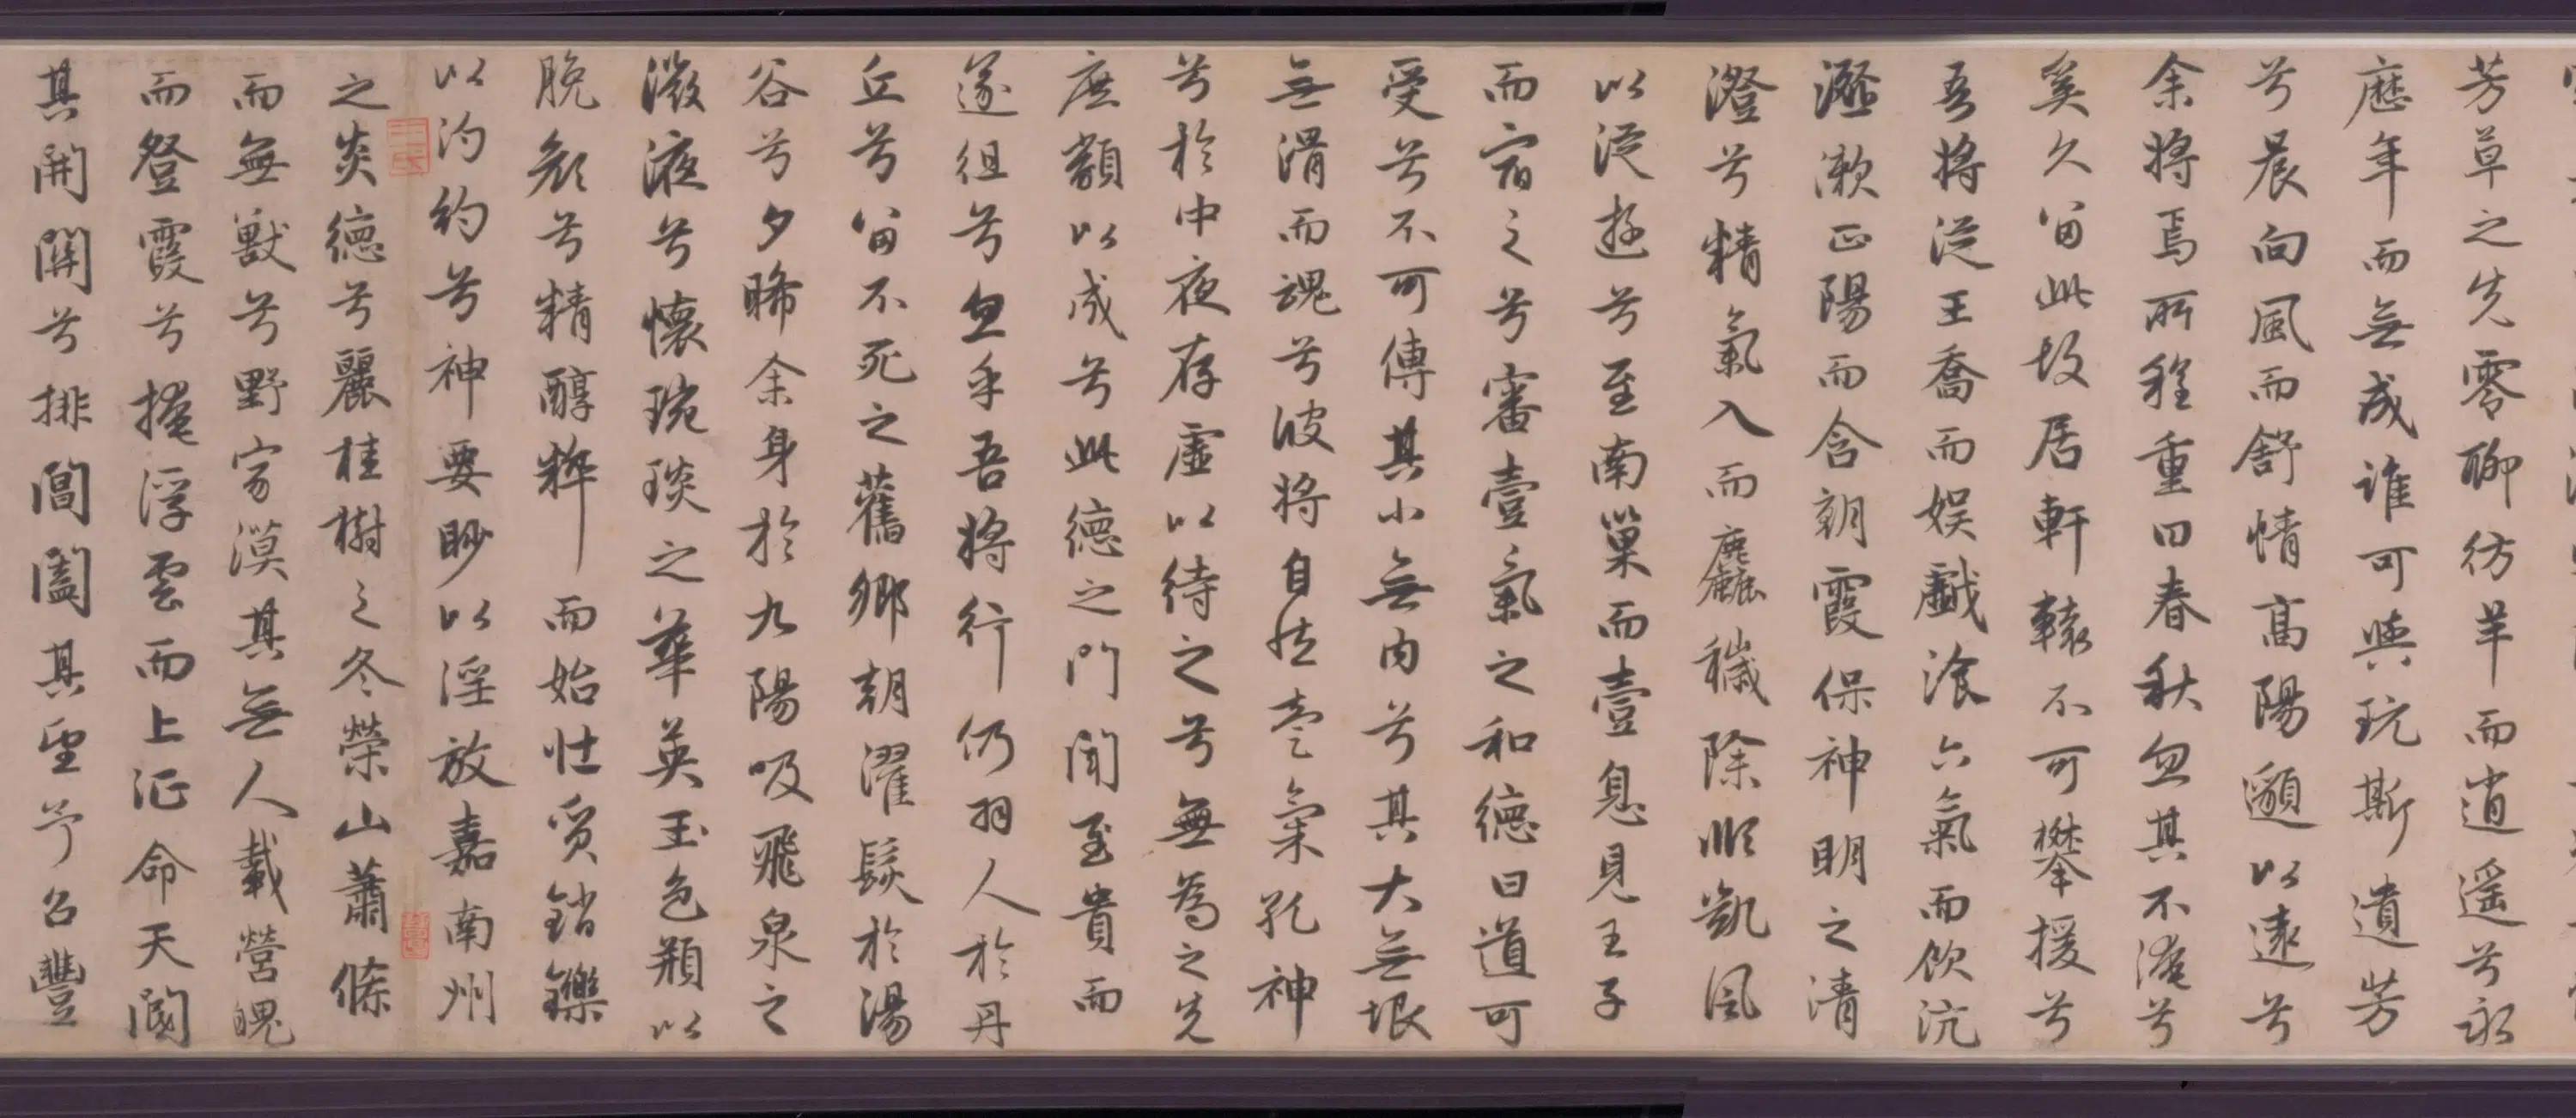 芳草之先零聊彷羊而逍遥兮永
歷年而無成誰可與玩斯遺芳
兮晨向風而舒情高陽邈以遠兮
余將焉所程重曰春秋忽其不淹兮
奚久留此故居軒轅不可攀援兮
吾將從王喬而娛戲飡六氣而飲沆
瀣漱正陽而含朝霞保神明之清
澄兮精氣入而麤穢除順凱風
以從遊兮至南巢而壹息見王子
而宿之兮審壹氣之和德曰道可
受兮不可傳其小無内兮其大無垠
無滑而魂兮彼將自然壹氣孔神
兮於中夜存虛以待之兮無為之先
庶類以成兮此德之門聞至貴而
遂徂兮忽乎吾將行仍羽人於丹
丘兮留不死之舊鄉朝濯髮於湯
谷兮夕晞余身於九陽吸飛泉之
微液兮懷琬琰之華英玉色頩以
脕顏兮精醇粹而始壯質銷鑠
以汋約兮神要眇以淫放嘉南州
之炎德兮麗桂樹之冬榮山蕭條
而無獸兮野寂漠其無人載營魄
而登霞兮掩浮雲而上征命天閽
其開關兮排閶闔其望予召豐